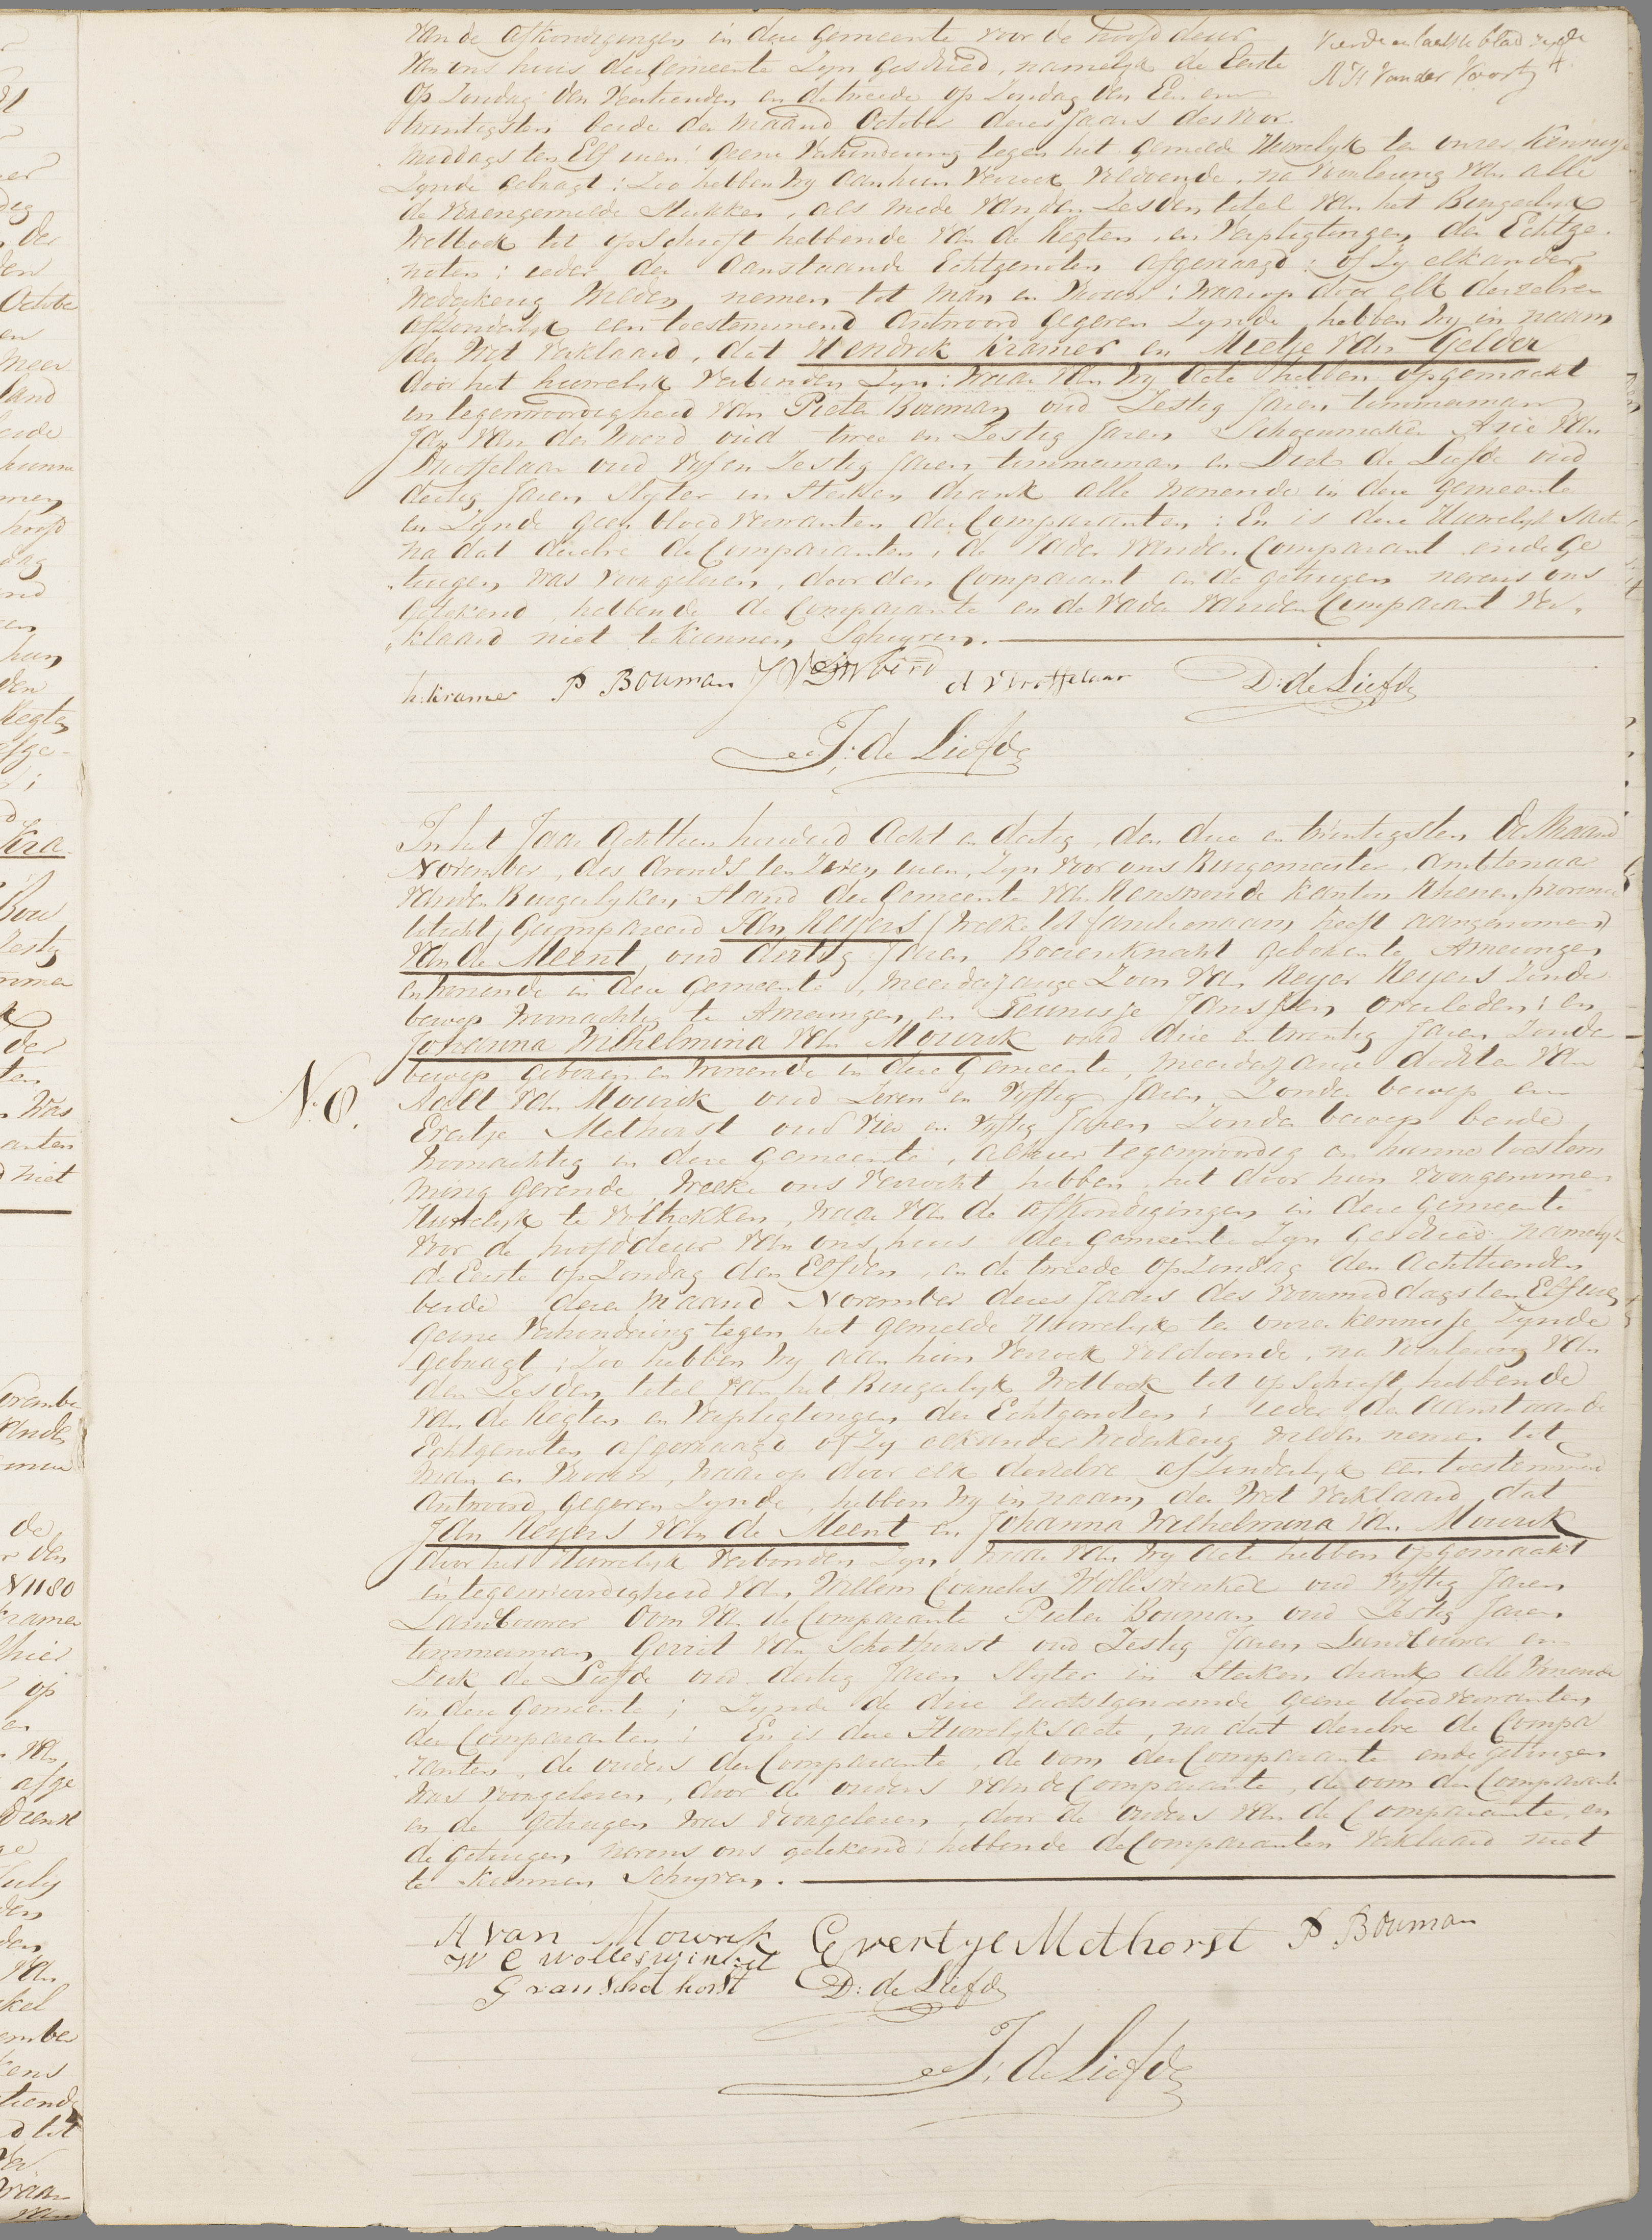 van de afkondigingen in deze Gemeente voor de hoofd deur
van ons huis der Gemeente zyn geschied, namelyk de Eerste
op Zondag den Veertienden en de tweede op Zondag den Een en
twintigsten beide der maand October dezes Jaars des voor
middags ten Elf uren: geene Verhindering tegen het gemelde Huwelyk ter onzer Kennisse
Zynde gebragt: Zoo hebben wy aan hun Verzoek voldoende, na Voorlezing van alle
de voorengemelde stukken, als mede van den Zesden titel van het Burgerlyk
Wetboek tot opschrift hebbende van de Regten en Verpligtingen der Echtge-
noten: ieder der Aanstaande Echtgenoten afgevraagd: of zy elkander
wederkerig wilden nemen tot man en Vrouw: waarop door elk derzelver
afzonderlyk een toestemmend Antwoord gegeven Zynde, hebben wy in naam
der Wet Verklaard, dat Hendrik Kramer en Meelje van Gelder
door het huwelyk Verbonden Zyn: waar van wy Acte hebben opgemaakt
in tegenwoordigheid van Pieter Bouman oud Zestig Jaren timmerman
Jan van der Woerd oud twee en Zestig Jaren Schoenmaker Arie van
Droffelaar oud Vyf en Zestig Jaren, timmerman en Dirk de Liefde oud
dertig Jaren Slyter in Sterken drank alle wonende in deze gemeente
en Zynde geen bloedverwanten der Comparanten: En is deze Huwelyk Sacte
na dat dezelve de Comparanten, de Vader van den Comparant en de Ge
tuigen was voorgelezen, door den Comparant en de getuigen nevens ons
getekend, hebbende de Comparante en de Vader van den Comparant Ver-
klaard niet te kunnen Schryven.
Vierde en laatste blad zyde
A H Van der Voort
h: kramer P Bouman D: de Liefde
J: de Liefde
In het Jaar Achttien honderd Acht en dertig, den drie en twintigsten der Maand
November, des Avonds ten Zeven uren, Zyn voor ons Burgemeester, Ambtenaar
van den Burgerlyken Stand der Gemeente van Renswoude Kanton Rhenen, provincie
Utrecht, Gecompareerd Jan Reyers (welke tot familienaam heeft aangenomen)
van de Meent, oud dertig Jaren Boerenknecht geboren te Amerongen
en wonende in deze gemeente, meerderjarige Zoon van Reyer Reyers Zonder
beroep woonachtig te Amerongen en Teunisje Jansen, overleden: en
Johanna Wilhelmina van Mourik oud drie en twintig Jaren Zonder
beroep geboren en wonende in deze Gemeente, meerderjarige dochter van
N. 8.
Aalt van Mourik oud Zeven en Vyftig Jaren Zonder beroep en
Evertje Methorst oud Vier en Vyftig Jaren Zonder beroep beide
woonachtig in deze Gemeente, alhier tegenwoordig en hunne toestem
ming gevende, welke ons verzocht hebben het door hun voorgenomen
Huwelyk te voltrekken, waar van de afkondigingen in deze gemeente
voor de hoofddeur van ons huis der gemeente Zyn geschied namelyk
de Eerste op Zondag den Elfden, en de tweede op Zondag den Achttienden
beide dezer Maand November dezes Jaars des voormiddags ten Elf uren
geene Verhindering tegen het gemelde Huwelyk ter onzer kennisse Zynde
gebragt; Zoo hebben wy aan hun Verzoek voldoende, na Voorlezing van
den Zesden titel van het Burgerlyk Wetboek tot opschrift hebbende
van de Regten en Verpligtingen der Echtgenoten: ieder der Aanstaande
Echtgenoten afgevraagd of Zy elkander Wederkerig wilden nemen tot
man en Vrouw, waar op door elk derzelve afzonderlyk een toestemmend
Antwoord gegeven Zynde, hebben wy in naam der Wet Verklaard, dat
Jan Reyers van de Meent en Johanna Wilhelmina van Mourik
door het Huwelyk Verbonden Zyn, waar van wy Acte hebben opgemaakt
in tegenwoordigheid van Willem Cornelis Wolleswinkel oud Vyftig Jaren
Landbouwer Oom van de Comparante Pieter Bouman oud Zestig Jaren
timmerman, Gerrit van Schothorst oud Zestig Jaren Landbouwer en
Dirk de Liefde oud dertig Jaren Slyter in Sterken drank alle Wonende
in deze Gemeente; Zynde de drie laatstgenoemde geene bloedverwanten
der Comparanten: En is deze Huwelyksacte, na dat dezelve de Compa
ranten, de ouders der Comparante, de oom der Comparante en de getuigen
was voorgelezen, door de ouders van de Comparante, de oom der Comparante
en de getuigen was voorgelezen, door de ouders van de Comparante, en
de getuigen nevens ons getekend; hebbende de Comparanten Verklaard niet
te kunnen Schryven.
A van Mourik Evertje Methorst P Bouman
W C Wolleswinkel
G van Schothorst D: de Liefde
J: de Liefde